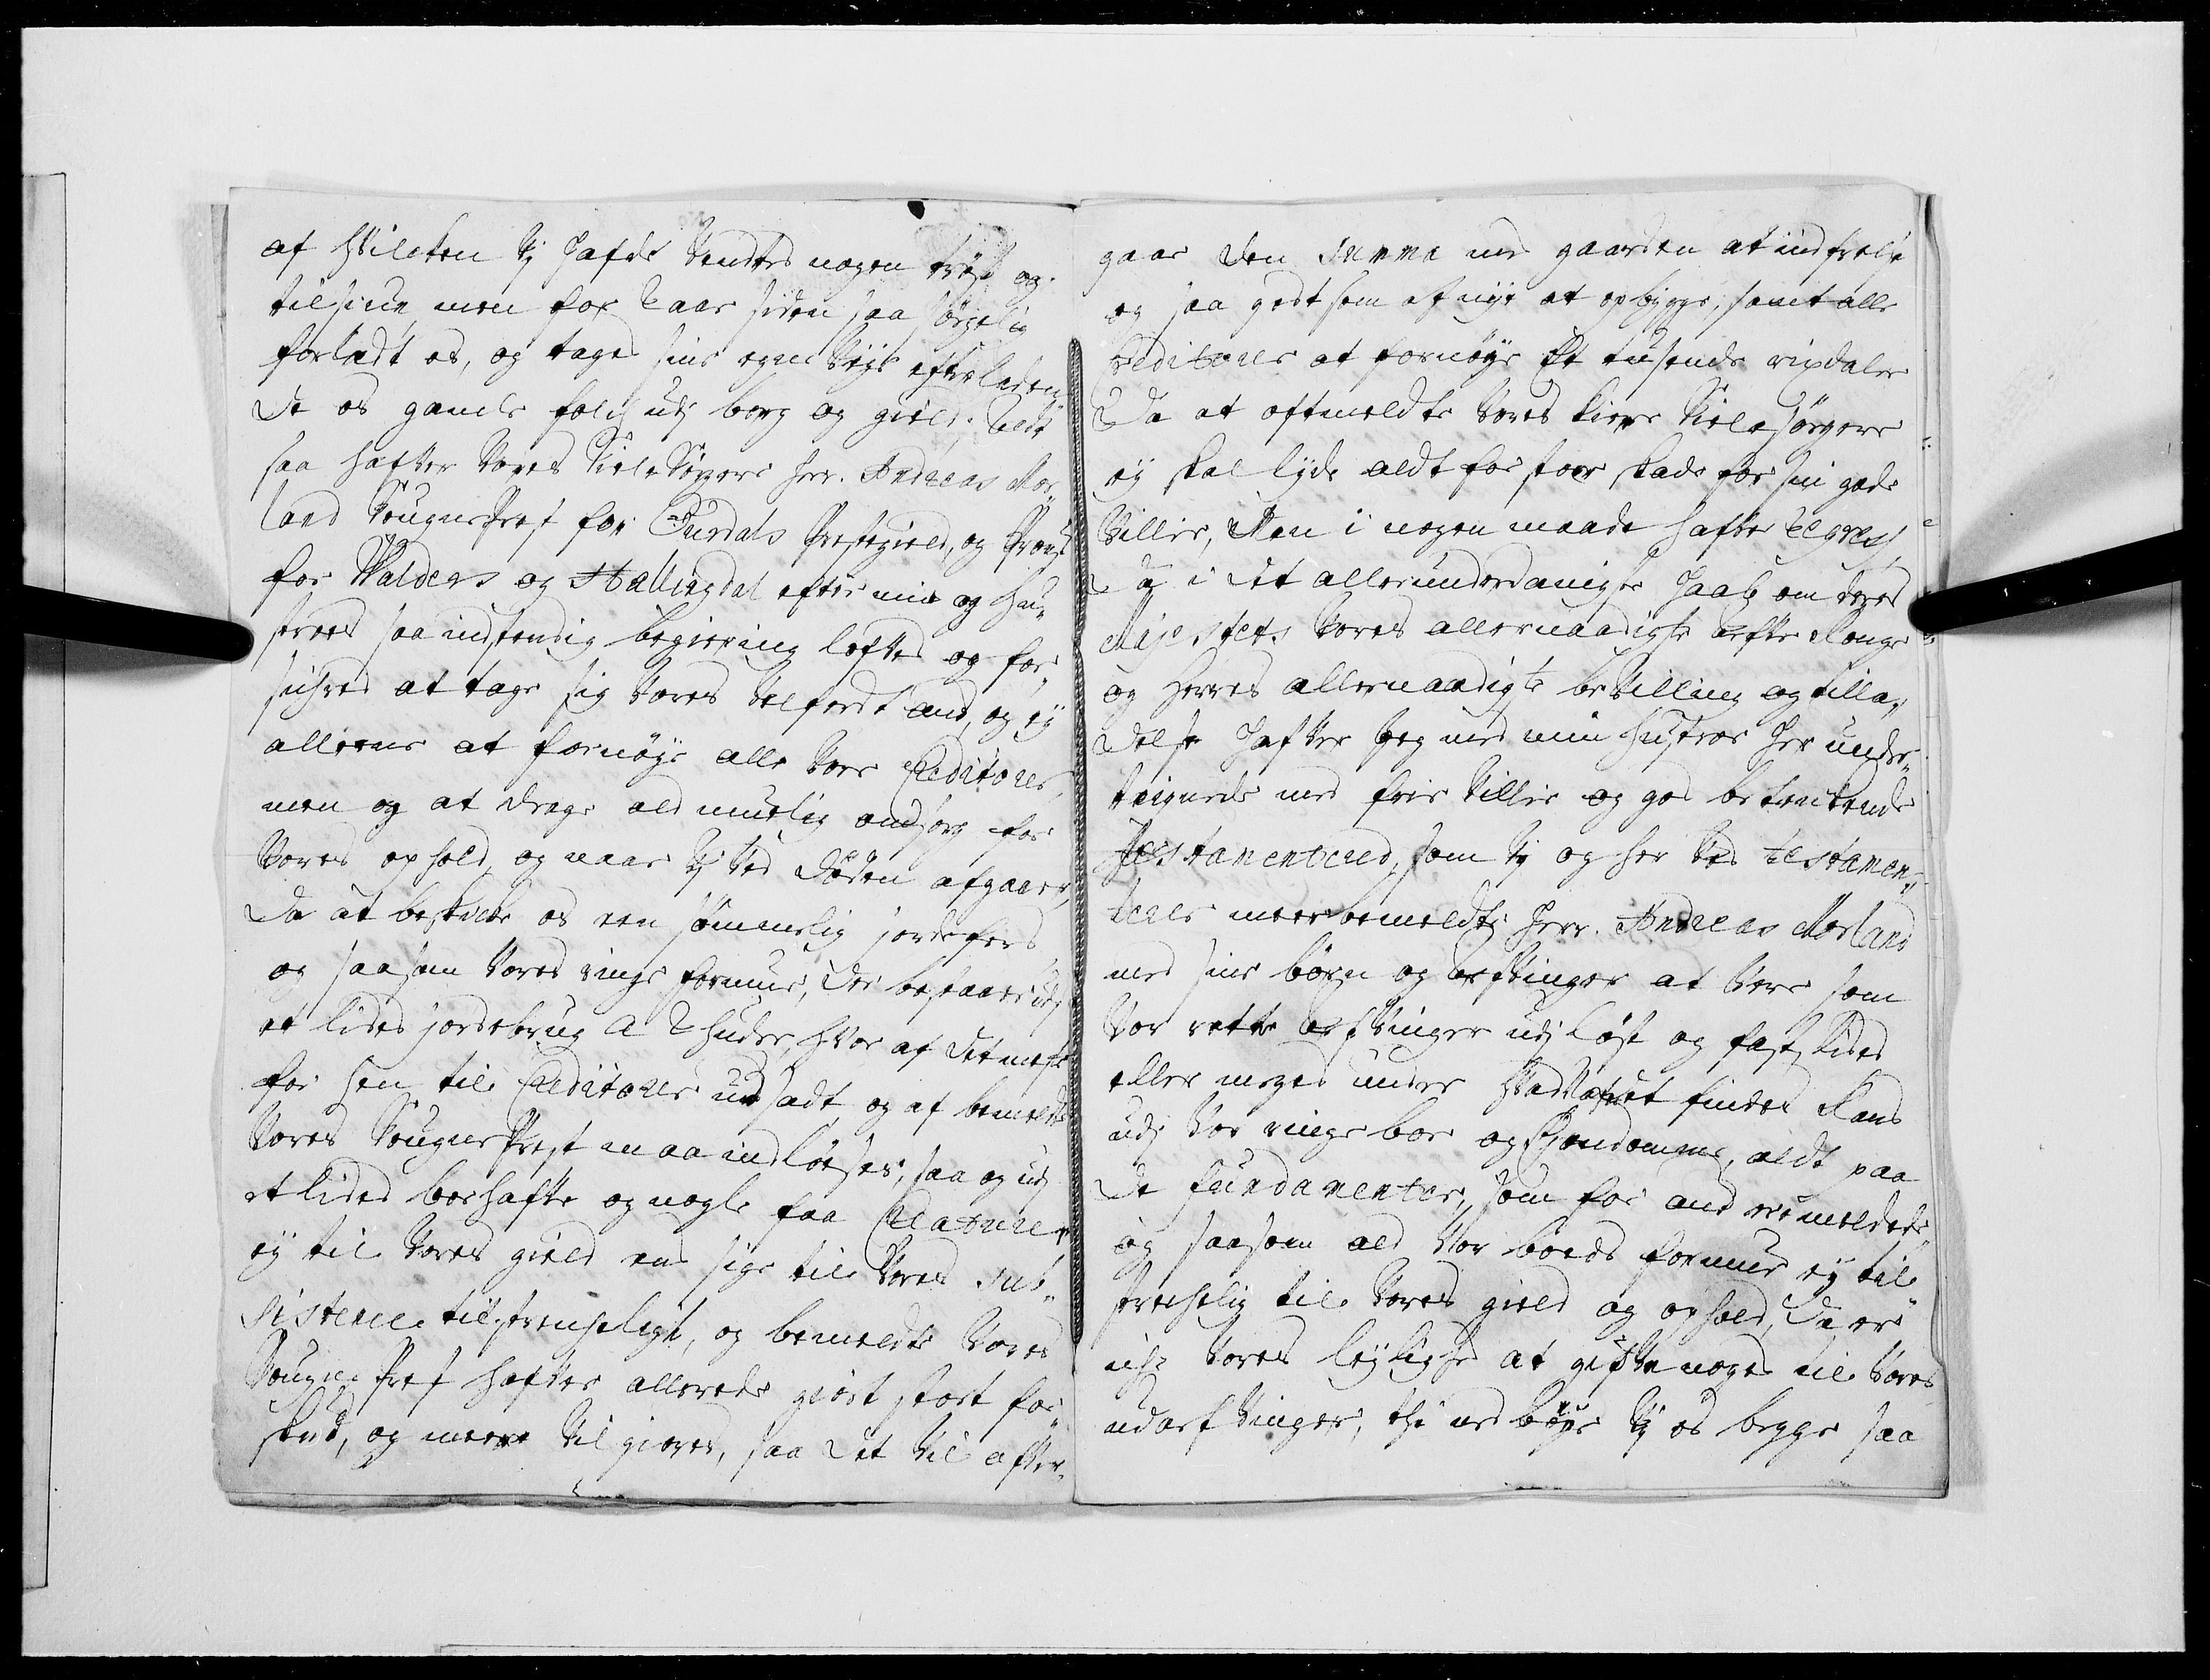 af hvilcken Vj hafde Ventet nogen trøst og
tilsiun, men for 2 aar siden saa sørgelig
forladt os, og taget sine egne Veje efterladen„
de os gamle folch udj borg og gield;
saa hafver Vores Siele Sørgere Herr. Andreas Mor„
land Sougne Prest for Ourdals Prestegield, og Provst
for Walders og Hallingdal efter min og Hu„
strues saa indstendig begiering lofvet og for„
sichret at tage sig Vores Velferdt and, og ej
alleene at fornøje alle Vore Creditores,
men og at drage ald muelig omsorg for
Vores ophold, og naar Vj Ved Døden afgaaer,
Da at bestille os een sømmelig jordeferd
og saasom Vores ringe formue, der bestaaer udj
et lidet jordebrug á 2 huder, hvor af det meste
for hen til Creditores udsadt og af bemeldte
Vores Sougne Prest maa indløeses, saa og udj
et lidet boehafve og nogle faa Creature
ej til Vores gield end sige til Vores sub„
sistence tilstreckeligt, og bemeldte Vores
Sougne Prest hafver allerede giort stort for„
skud, og meere Vil giøres, saa det Vil after„
gaae den Summa med gaarden at indfrelse
og saa godt som af nye at opbygge, samt alle
Creditores at fornøje Et tusende rixdaler
Da at oftmeldte Vores kiere Siele Sørgere
ej skal lyde aldt for stoer skade for sin gode
Villie, Men i nogen maade hafve regress,
Da i det allerunderdanigste Haab om deres
Majestets Vores allernaadigste Arfve Konge
og Herres allernaadigste bevilling og tilla„
delse hafver Jeg med min Hustroe her under„
teignede med frie Villie og god betenckende
Testamentered, som Vj og her Ved testamen„
terer meerbemeldte Herr. Andreas Morland
med sine børn og Arfvinger at Vere som
Vor rette Arfvinger udj løst og fast, lidet
eller meget under hvad Nafn det findes Kand
udj Vor ringe boe og Ejendomme, aldt paa
De fundamenter, som for and ere meldede„
og saasom ald Vor boeds formue ej til„
streckelig til Vores gield og ophold, da er
icke Vores lejlighed at gifve noget til Vores
udarfvinger, thi med bøje Vj os begge saa